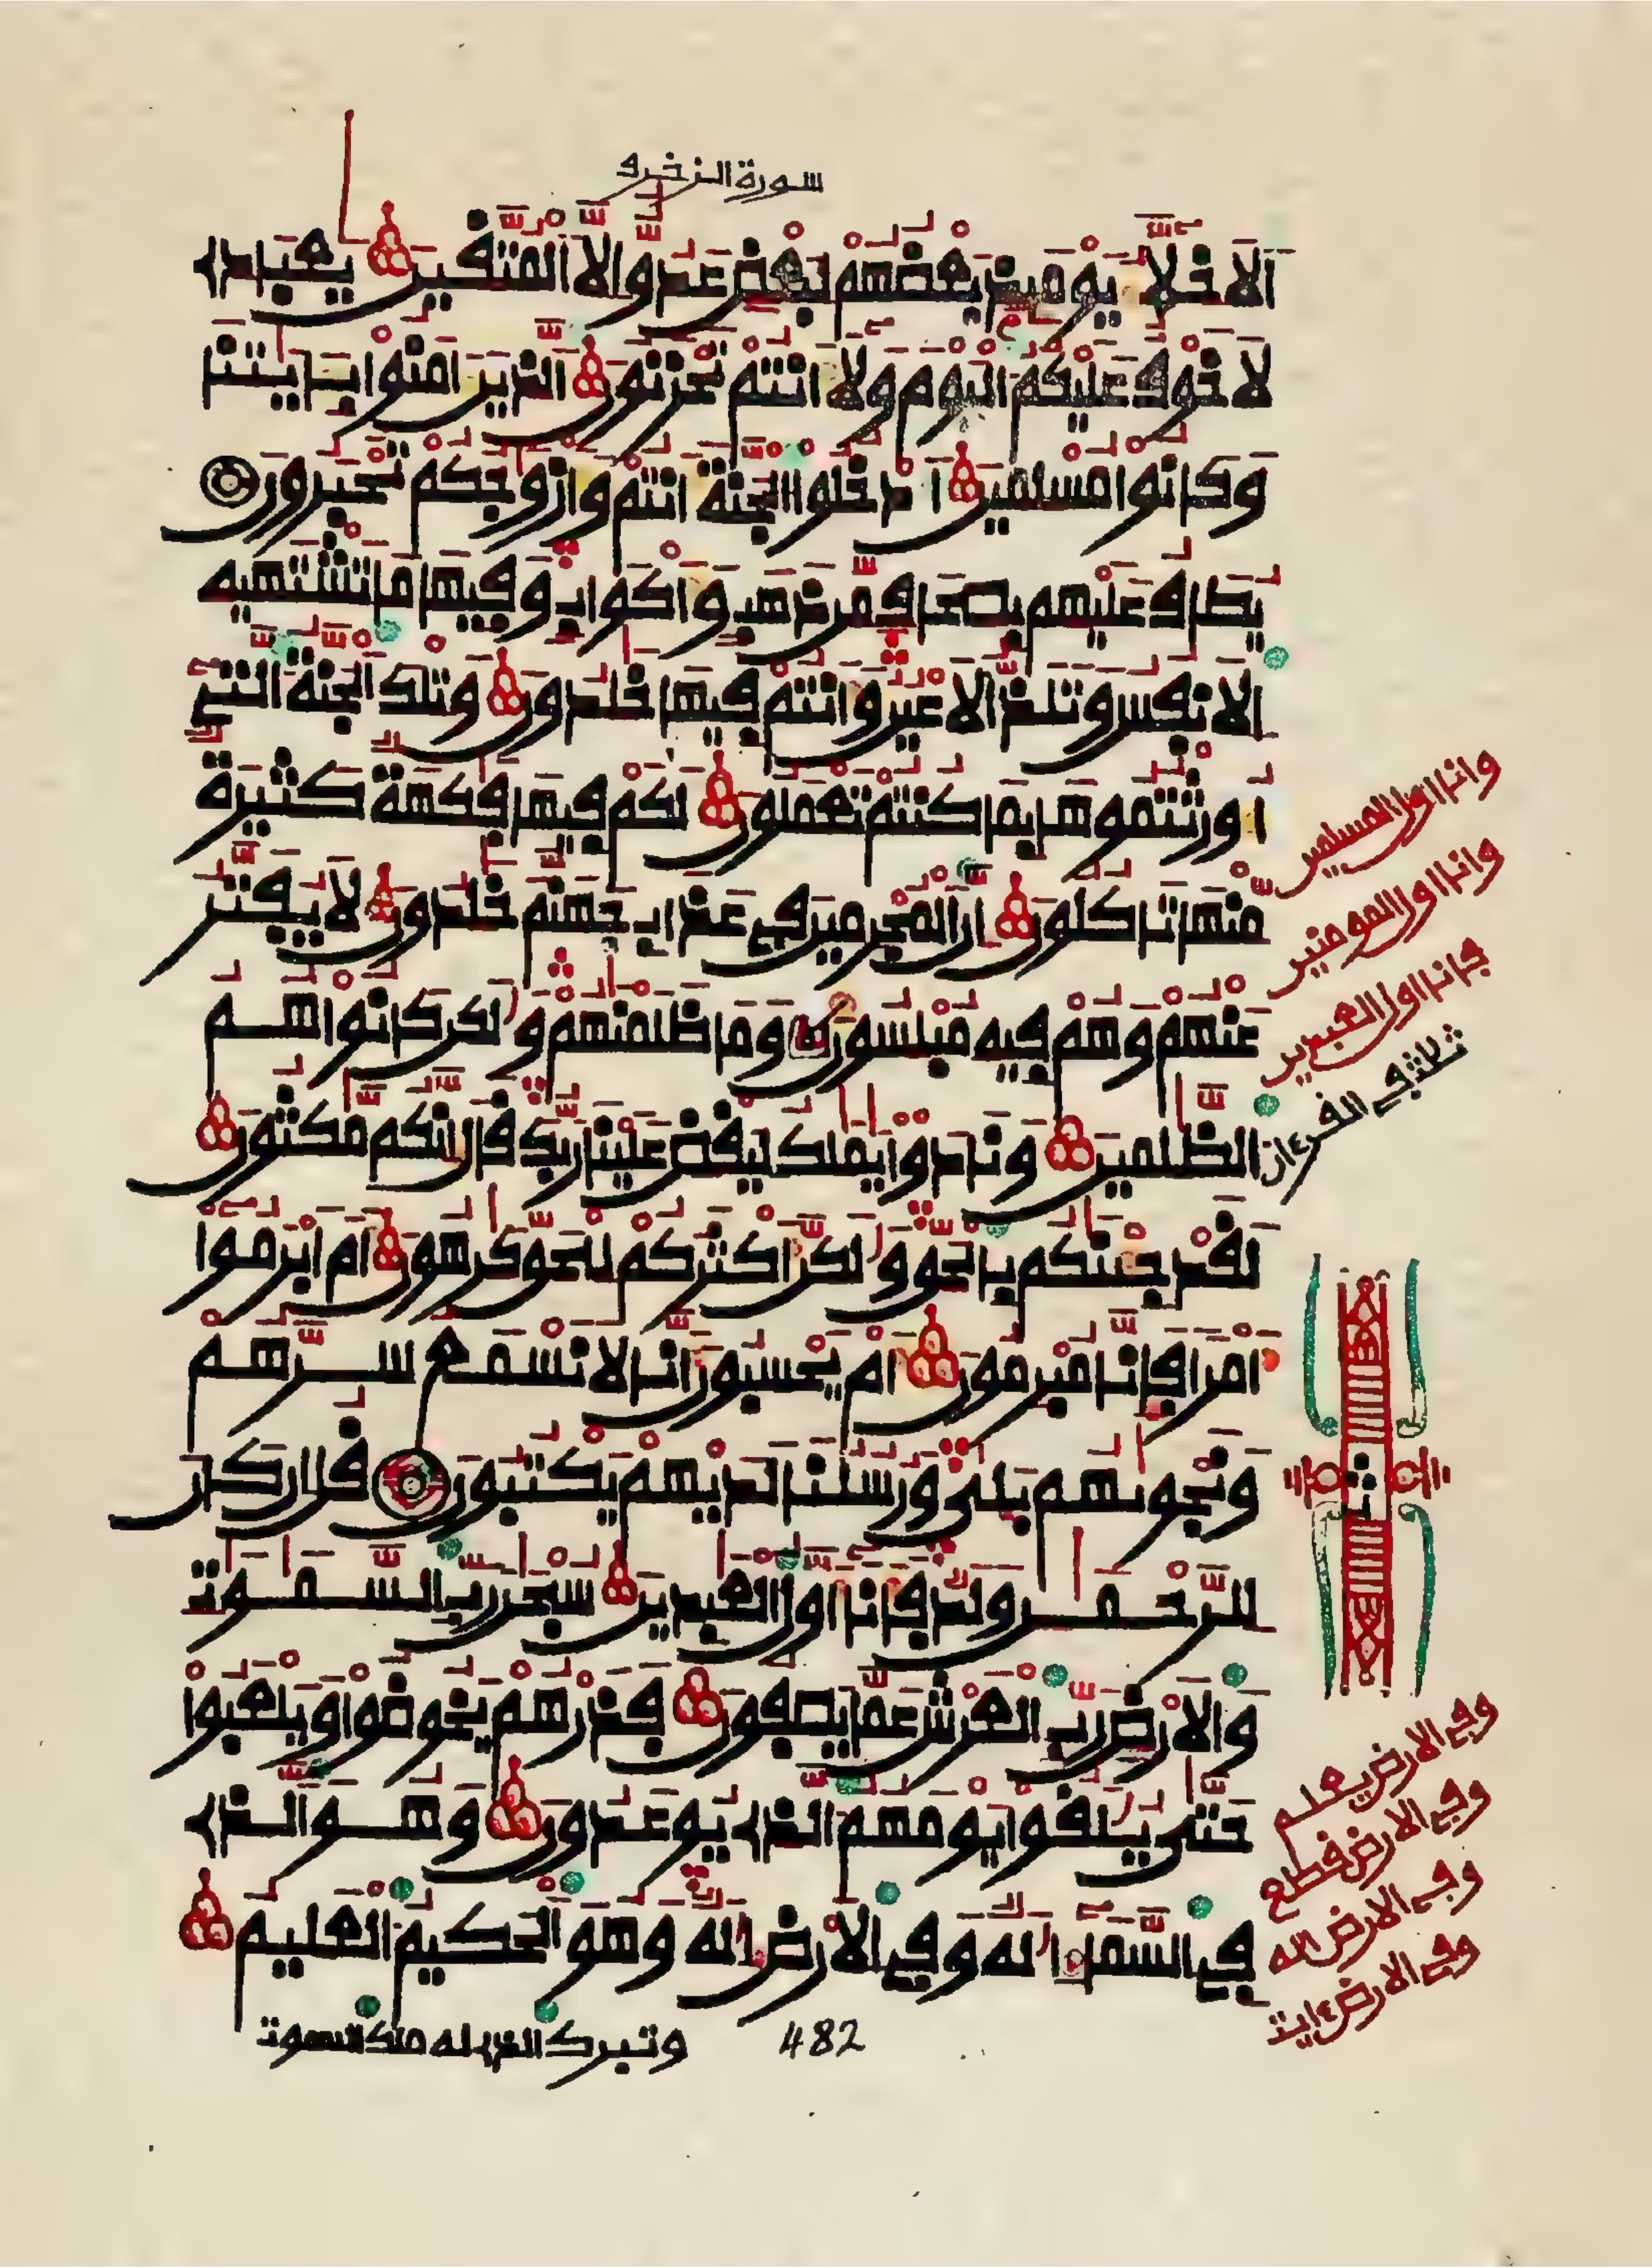 سورة الزخرف
الاخلاء يومئذ بعضهم لبعض عدو الا المتقين يعبادے
لا خوف عليكم اليوم ولا انتم تحزنون الذين امنوا بايتنا
وكانوا مسلمين ادخلوا الجنة انتم وازوجكم تحبرون
يطاف عليهم بصحاف من ذهب واكواب وفيها ما تشتهيه
الانفس وتلذ الاعين وانتم فيها خلدون وتلك الجنة التے
اورثتموها بما كنتم تعملون لكم فيها فكهة كثيرة
منها تاكلون ان المجرمين في عذاب جهنم خلدون لا يفتر
عنهم وهم فيه مبلسون وما ظلمنهم ولكن كانوا هم
الظلمين ونادوا يملك ليقض علينا ربك قال انكم مكثون
لقد جئنكم بالحق ولكن اكثركم للحق كرهون ام ابرموا
امرا فانا مبرمون ام يحسبون انا لا نسمع سرهم
ونجويهم بلى ورسلنا لديهم يكتبون قل ان كان
للرحمن ولد فانا اول العبدين سبحن رب السموت
والارض رب العرش عما يصفون فذرهم يخوضوا ويلعبوا
حتى يلقوا يومهم الذے يوعدون وهو الذے
في السماء اله وفي الارض اله وهو الحكيم العليم
وانا اول المسلمين
وانا اول المومنين
فانا اول العبدين
ثلاثة في القرءان
ثمن
وفي الارض يعلم
وفي الارض قطع
وفي الارض اله
وفي الارض ءايت
482
وتبرك الذے له ملك السموت